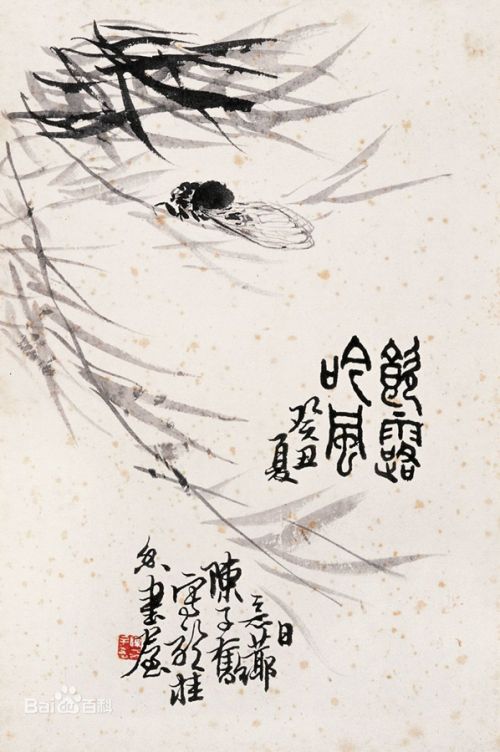 飲露
吟風
癸丑
夏
日
意薌
陳子奮
寫於桂
香書屋
Bai百科